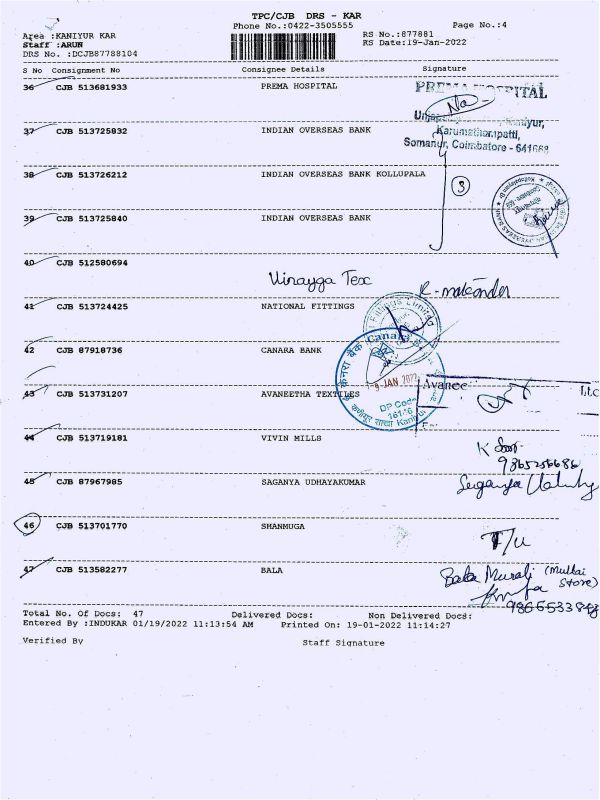 TPC/CJB DRS - KAR
Phone No.:0422-3505555 Page No.:4
Area :KANIYUR KAR RS No.:877881
Staff :ARUN RS Date:19-Jan-2022
DRS No. :DCJB87788104
S No Consignment No Consignee Details Signature
36 CJB 513681933 PREMA HOSPITAL PREMA HOSPITAL
Karumathampatti,
Somanur, Coimbatore - 641668
37 CJB 513725832 INDIAN OVERSEAS BANK
38 CJB 513726212 INDIAN OVERSEAS BANK KOLLUPALA
3
39 CJB 513725840 INDIAN OVERSEAS BANK
40 CJB 512580694
Vinayga Tex
41 CJB 513724425 NATIONAL FITTINGS
42 CJB 87918736 CANARA BANK
Canara
केनरा बैंक
JAN 2022
43 CJB 513731207 AVANEETHA TEXTILES
Avanee
DP Code
44 CJB 513719181 VIVIN MILLS
9865256686
45 CJB 87967985 SAGANYA UDHAYAKUMAR
46 CJB 513701770 SHANMUGA
T/u
47 CJB 513582277 BALA
Bala Murali (Mullai Store)
Total No. Of Docs: 47 Delivered Docs: Non Delivered Docs:
Entered By :INDUKAR 01/19/2022 11:13:54 AM Printed On: 19-01-2022 11:14:27
Verified By Staff Signature